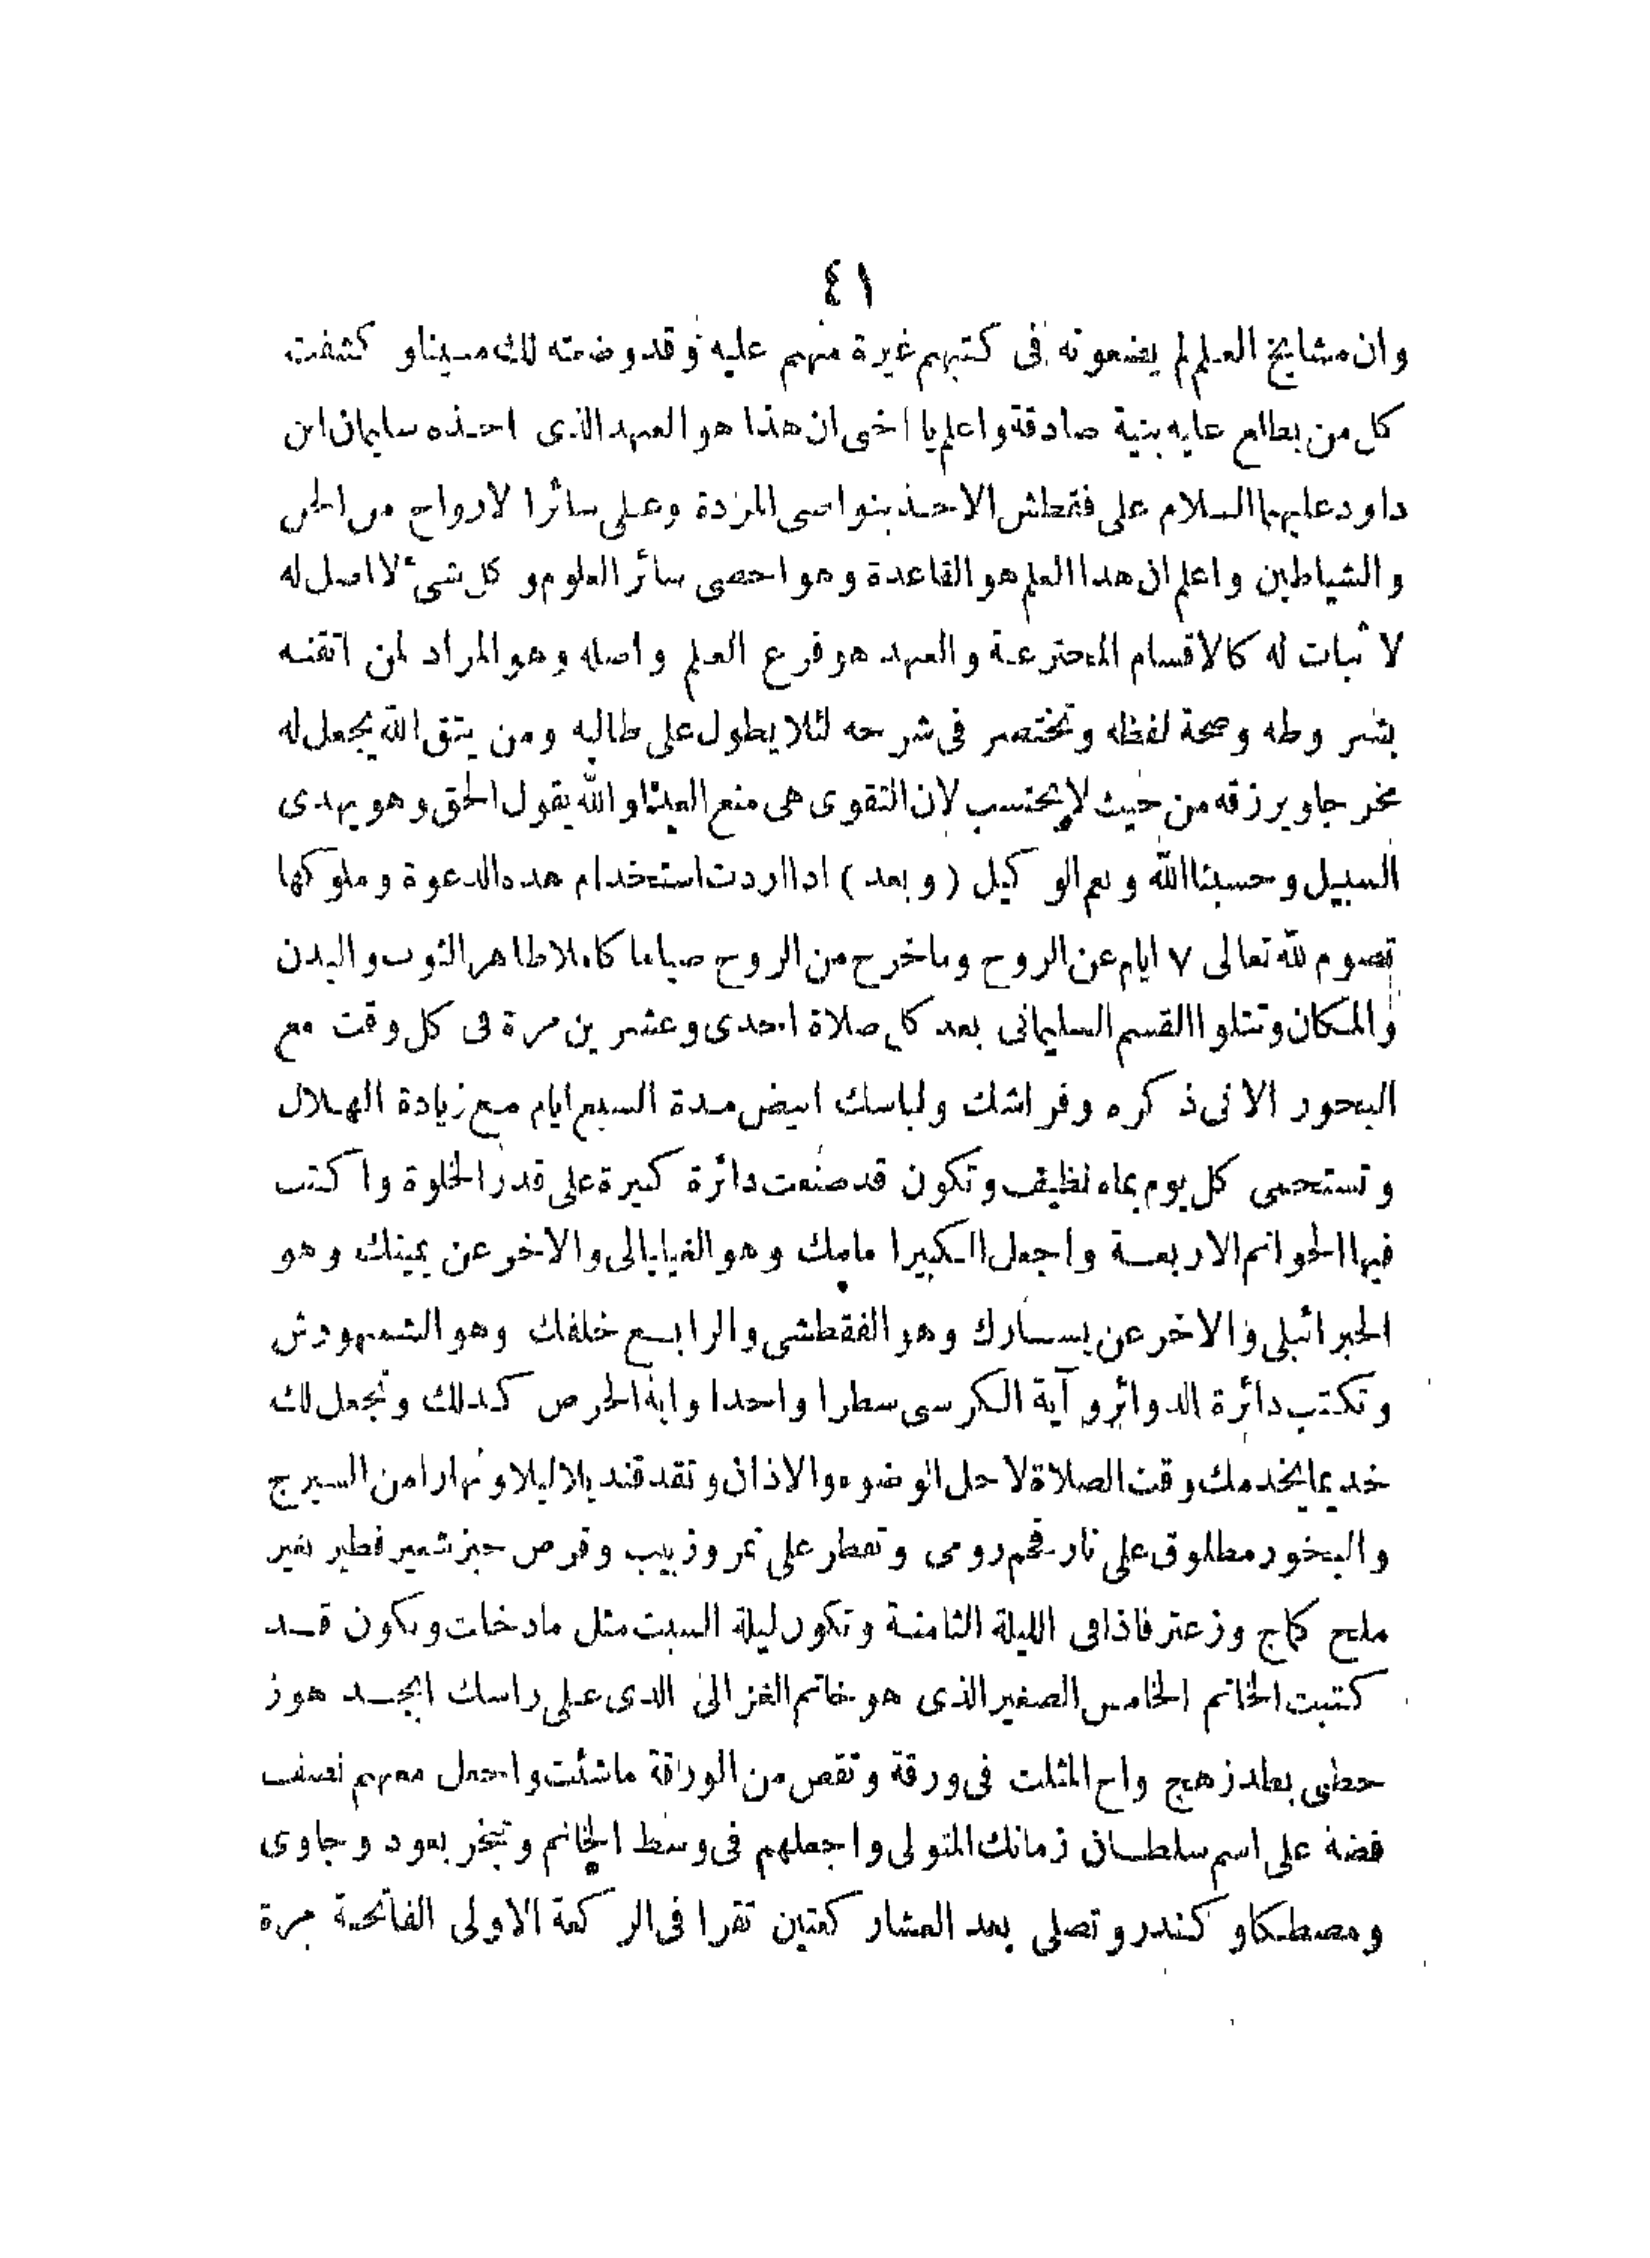 ٤١
وان مشايخ العلم لم يضعوته فى كتبهم غيرة منهم عليه وقد وضعته لك مبينا و كشفت
كل من يطالع عليه بنية صادقة واعلم يا اخى ان هذا هو العهد الذى اخذه سليمان ابن
داود عليهما السلام على فقطش الاخذ بنواصى المردة وعلى سائر الارواح من الجن
والشياطين واعلم ان هدا العلم هو القاعدة وهو احصى سائر العلوم و كل شىء لا اصل له
لا ثبات له كالاقسام المخترعة والعهد هو فرع العلم واصله وهو المراد لمن اتقنه
بشر وطه وصحة لفظه وتختصر فى شرحه لئلا يطول على طالبه ومن يتق الله يجعل له
مخر جاويرزقه من حيث لا يحتسب لان التقوى هى منع العبث والله يقول الحق وهو يهدى
السبيل وحسبنا الله ونعم الو كيل (وبعد) ادا اردت استخدام هده الدعوة وملو كها
تصوم لله تعالى ٧ ايام عن الروح وماخرج من الروح صياما كاملا طاهر الثوب والبدن
والمكان وتتلوا القسم السليمانى بعد كل صلاة احدى وعشر ين مرة فى كل وقت مع
البحور الاتى ذ كره وفراشك ولباسك ابيض مدة السبع ايام مع زيادة الهلال
وتستحمى كل يوم بماء نظيف وتكون قد صنعت دائرة كبيرة على قدر الخلوة واكتب
فيها الخواتم الاربعة واجعل الكبير امامك وهو الغيايالى والاخر عن يمينك وهو
الجبرائيلى والاخر عن يسارك وهو الفقطشى والرابع خلفك وهو الشمهورش
وتكتب دائرة الدوائر وآية الكرسى سطرا واحدا واية الحرص كدلك وتجعل لك
خديما يخدمك وقت الصلاة لاجل الوضوء والاذان وتقد قنديلا ليلا ونهارا من السيرج
والبخور مطلوق على نار فحم رومى وتفطر على تمر وزبيب وقرص خبز شعير فطير بغير
ملح كماج وزعتر فاذا فى الليلة الثامنة وتكون ليلة السبت مثل مادخلت ويكون قد
كتبت الخاتم الخامس الصغير الذى هو خاتم الغزالى الدى على راسك ابجد هوز
حطى بطد زهج واح المثلث فى ورقة وتقص من الوراقة ماشئت واجعل معهم نصف
فضة على اسم سلطان زمانك المتولى واجعلهم فى وسط الخاتم وتبخر بعود وجاوى
ومصطكاو كندر وتصلى بعد العشار كعتين تقرا فى الر كعة الاولى الفاتحة مرة